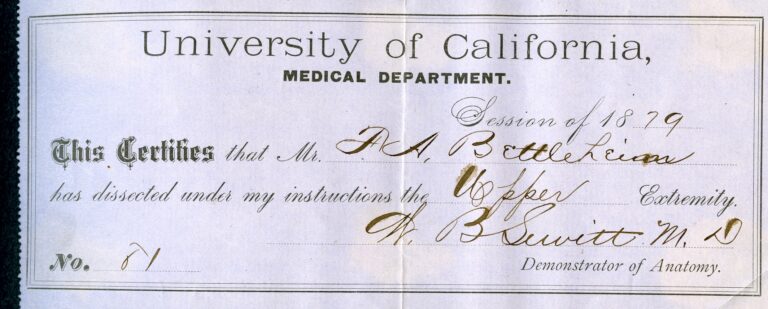 University of California,
MEDICAL DEPARTMENT.
Session of 1879
This Certifies that Mr. F. A. Bettleheim
has dissected under my instructions the Upper Extremity.
W. B Lewitt M. D
No. 81 Demonstrator of Anatomy.